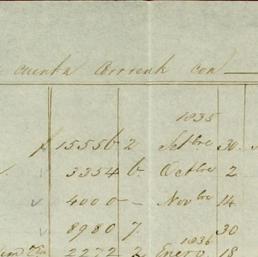 cuenta Corriente con
1835
15556 2 Setbre 30
3354 6 Octbre 2
4000 - Novbre 14
8980 7 30
1836
2272 2 Enero 18